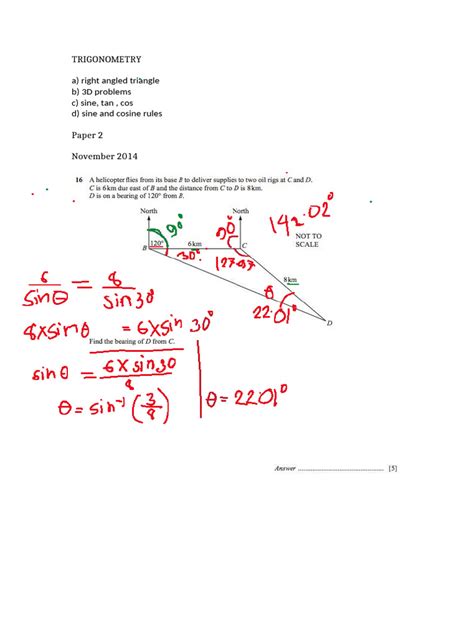 TRIGONOMETRY
a) right angled triangle
b) 3D problems
c) sine, tan , cos
d) sine and cosine rules
Paper 2
November 2014
16 A helicopter flies from its base B to deliver supplies to two oil rigs at C and D.
C is 6 km due east of B and the distance from C to D is 8 km.
D is on a bearing of 120° from B.
North
North
90°
90°
142.02°
NOT TO
SCALE
B
120°
6 km
C
30°
127.97
8 km
θ
22.01°
D
6/sinθ = 8/sin30
8×sinθ = 6×sin30°
Find the bearing of D from C.
sinθ = 6×sin30/8
θ = sin⁻¹(3/8)
θ = 22.01°
Answer ................................................ [5]